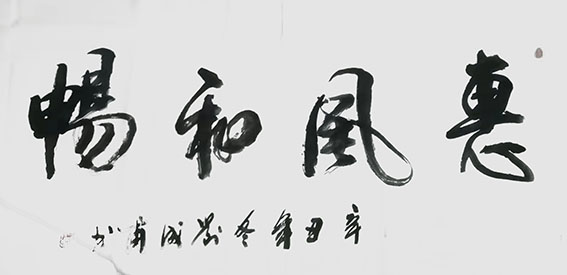 惠風和暢
辛丑年冬